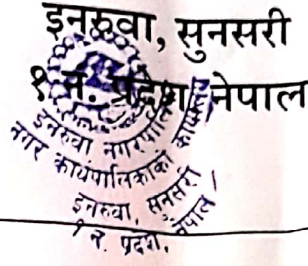 इनरुवा, सुनसरी
१ न. प्रदेश, नेपाल
इनरुवा नगरपालिका
नगर कार्यपालिकाको कार्यालय
इनरुवा, सुनसरी
१ न. प्रदेश, नेपाल